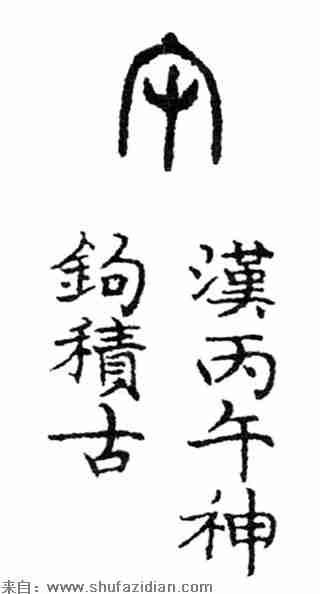 漢丙午神
鉤積古
来自：www.shufazidian.com